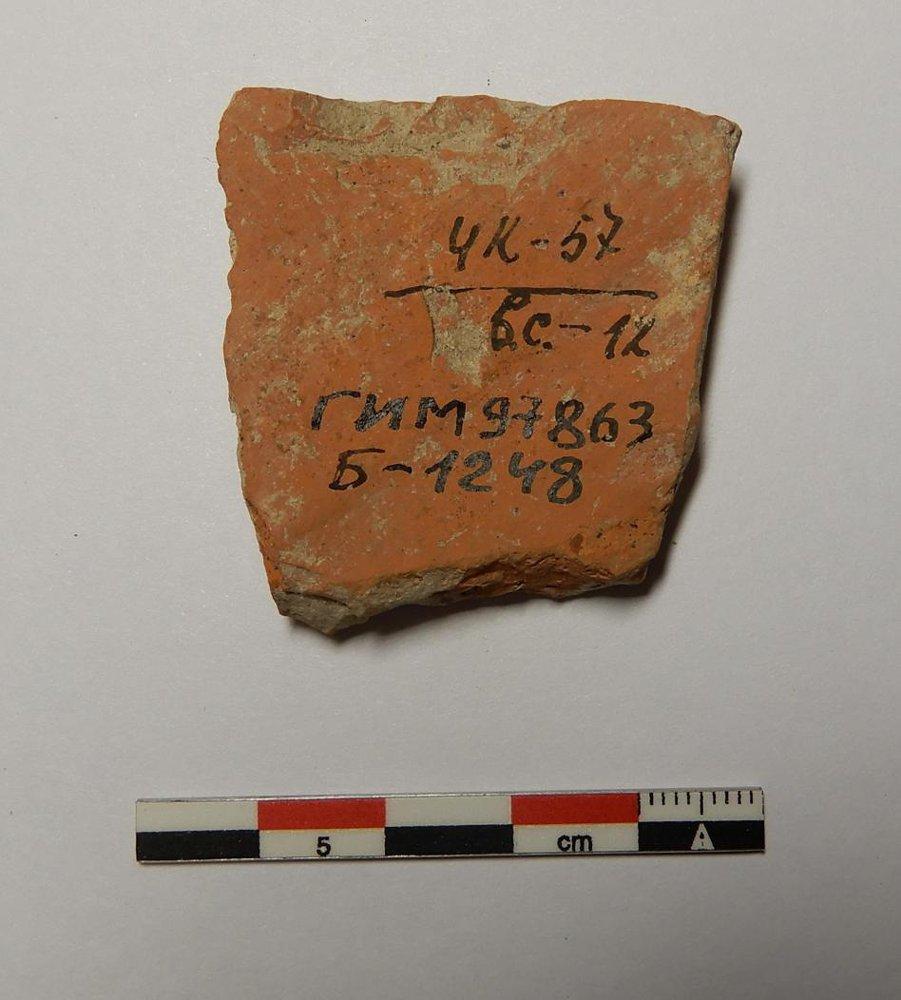 ЧК-57
БС-12
ГИМ 97863
Б-1248
5 cm
A